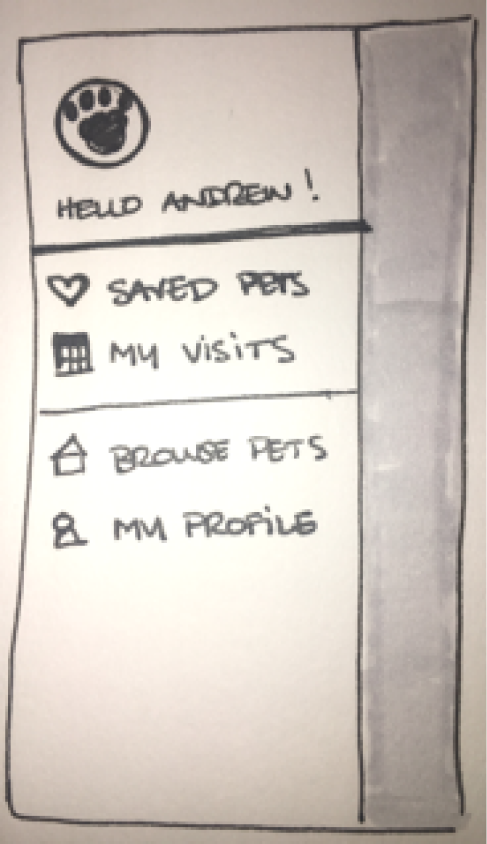 HELLO ANDREW!
SAVED PETS
MY VISITS
BROWSE PETS
MY PROFILE